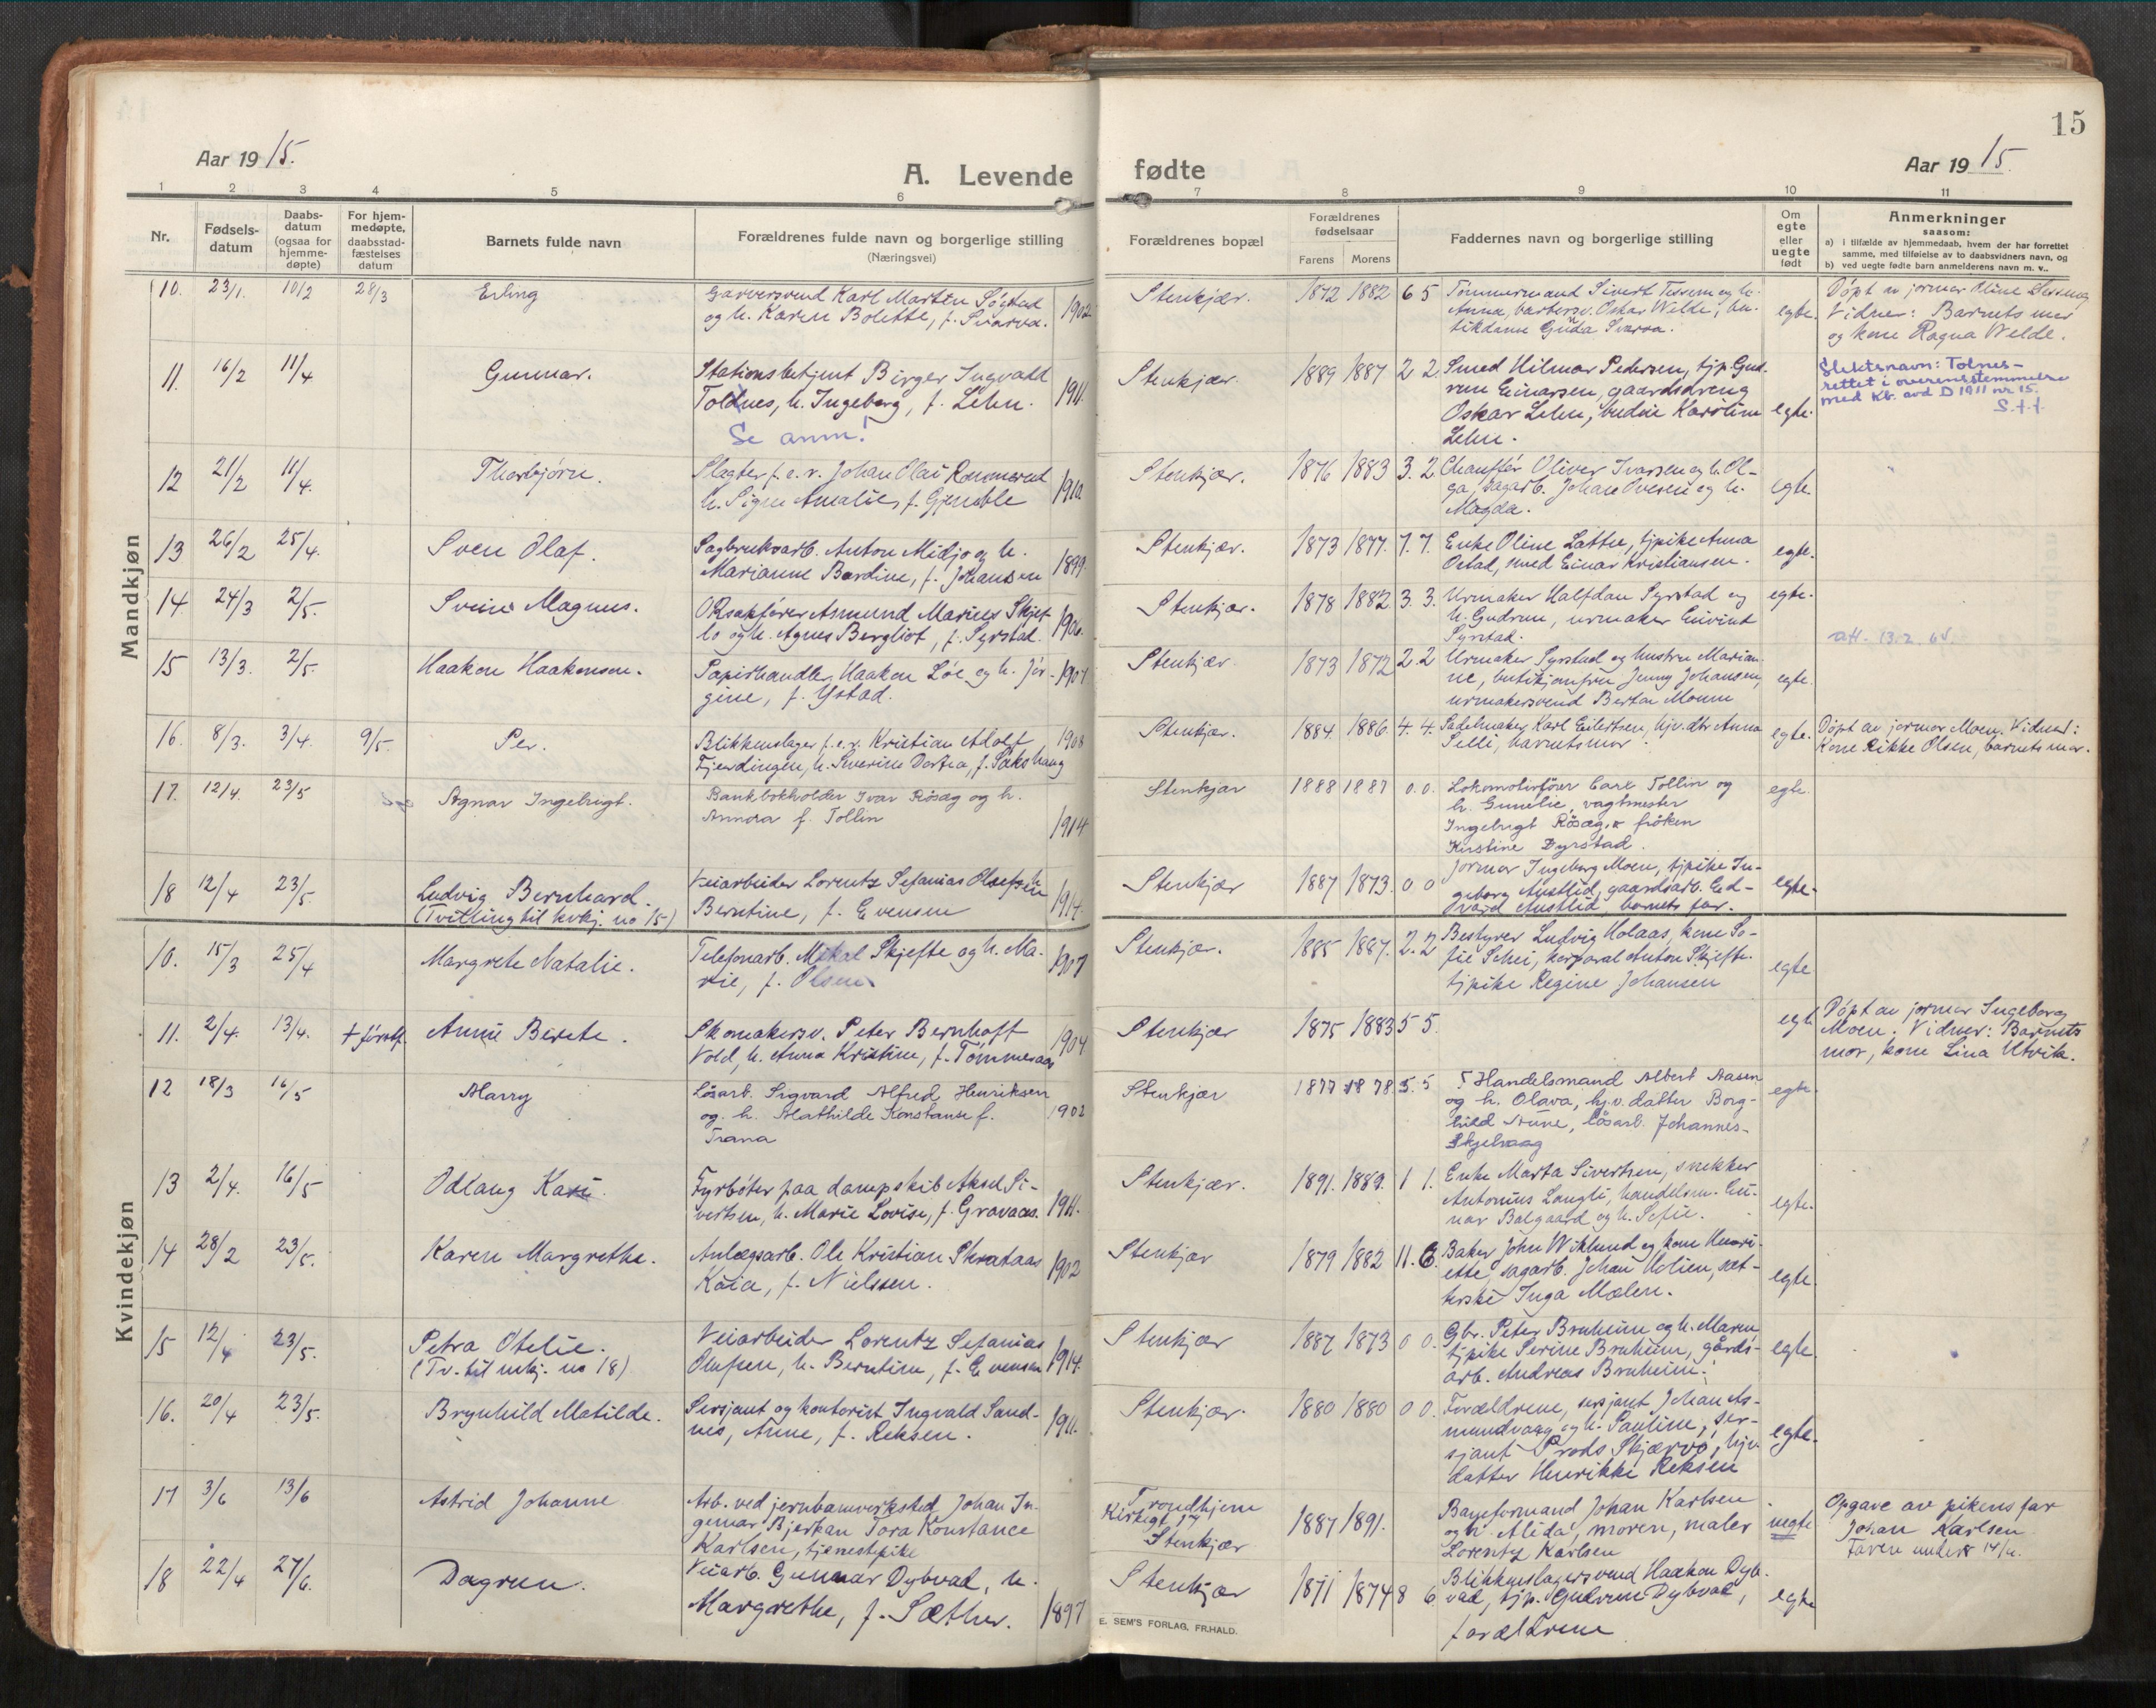 15
Aar 1915.
A. Levende fødte
Aar 1915.
1 2 3 4 5 6 7 8 9 10 11
Nr.
Fødsels-datum
Daabs-datum (ogsaa for hjemme-døpte)
For hjem-medøpte, daabsstad-fæstelses datum
Barnets fulde navn
Forældrenes fulde navn og borgerlige stilling
(Næringsvei)
Forældrenes bopæl
Forældrenes fødselsaar
Farens Morens
Faddernes navn og borgerlige stilling
Om egte eller uegte født
Anmerkninger
saasom:
a) i tilfælde av hjemmedaab, hvem der har forrettet
samme, med tilføielse av to daabsvidners navn, og
b) ved uegte fødte barn anmelderens navn m. v..
Mandkjøn
10. 23/1. 10/2 28/3 Erling
Garversvend Karl Martin Søgstad
og h. Karen Bolette, f. Svarva. 1902.
Stenkjær. 1872 1882 6 5
Tømmermand Sivert Tessem og h.
Anna, barbersv. Oskar Welde, bu-
tikdame Gunda Svarva.
egte.
Døpt av jormor Oline
Vidner: Barnets mor
og kone Ragna Welde.
11. 16/2 11/4 Gunnar.
Stationsbetjent Birger Ingvald
Toldnes, h. Ingeborg, f. Lein. 1911.
Se anm!
Stenkjær. 1889 1887 2 2.
Smed Hilmar Pedersen, tjp. Gud-
run Einarsen, gaardsdreng
Oskar Lein, budeie Karoline
Lein.
egte.
Slektsnavn: Tolnes-
rettet i overensstemmelse
med Kb. avd D 1911 nr 15.
S.f.f.
12 21/2 11/4. Thorbjørn.
Slagter f.e.r. Johan Olai Rømmerud
h. Signe Amalie, f. Gjemble 1910
Stenkjær. 1876 1883 3. 2
Chauffør Oliver Ivarsen og h. Ol-
ga, sagarb. Johan Ovesen og h.
Magda.
egte.
13 26/2 25/4. Sven Olaf.
Sagbruksarb. Anton Midjo og h.
Marianne Bardine, f. Johansen 1899.
Stenkjær. 1873 1877. 7. 7.
Enke Oline Lattu, tjpike Anna
Østad, smed Einar Kristiansen.
egte.
14 24/3 2/5. Svein Magnus.
ORsakfører Asmund Marius Skjef-
lo og h. Agnes Bergliot, f. Syrstad. 1906.
Stenkjær. 1878 1882 3. 3.
Urmaker Halfdan Syrstad og
h. Gudrun, urmaker Eivint
Syrstad.
egte.
att. 13.2.65
15 13/3. 2/5. Haakon Haakonsen.
Papirhandler Haakon Løe og h. Jør-
gine, f. Ystad. 1907
Stenkjær 1873 1872 2. 2
Urmaker Syrstad og hustru Marian-
ne, butikjomfru Jenny Johansen,
urmakersvend Berton Moum
egte.
16. 8/3. 3/4. 9/5. Per.
Blikkenslager f.e.r. Kristian Adolf
Fjerdingen, h. Severine Dortea, f. Sakshaug 1908
Stenkjær. 1884. 1886. 4. 4.
Sadelmaker Karl Eilertsen, hjv. dtr Anna
Selli, barnets mor.
egte.
Døpt av jormor Moen. Vidner:
Kone Rikke Olsen, barnets mor.
17. 12/4. 23/5 Agnar Ingebrigt.
Bankbokholder Ivar Røsæg og h.
Annora f. Tollin 1914
Stenkjær 1888 1887 0. 0.
Lokomotivfører Carl Tollin og
h. Emelie, vagtmester
Ingebrigt Røsæg, frøken
Kirstine Dyrstad.
egte.
18 12/4 23/5. Ludvig Bernhard.
(Tvilling til kvkj. no 15)
Veiarbeider Lorentz Sefanias Olufsen h.
Berntine, f. Evensen 1914.
Stenkjær 1887 1873. 0 0
Jormor Ingeborg Moen, tjpike In-
geborg Austlid, gaardsarb. Ed-
vard Austlid, barnets far.
egte.
Kvindekjøn
10. 15/3 25/4 Margrete Natalie.
Telefonarb. Mikal Skjefte og h. Ma-
rie, f. Olsen 1907
Stenkjær. 1885 1887. 2. 2
Bestyrer Ludvig Holaas, kone So-
fie Schei, korporal Anton Skjefte.
tjpike Regine Johansen
egte
11. 2/4. 13/4. Anne Berete.
Skomakersv. Peter Bernhoft
Vold, h. Anna Kristine, f. Tømmeraas 1904
Stenkjær 1875 1883 5 5.
egte
Døpt av jormor Ingeborg
Moen. Vidner: Barnets
mor, kone Lina Utvik.
12 18/3 16/5 Harry
Løsarb. Sigvard Alfred Henriksen
og h. Mathilde Konstanse f.
Trana 1902
Stenkjær 1877 1878 5. 5
Handelsmand Albert Aasen
og h. Olava, hj.v. datter Borg-
hild Aune, løsarb. Johannes
Skjelvaag
egte.
13 2/4. 16/5 Odlaug Kari.
Fyrbøter paa dampskib Aksel Si-
vertsen, h. Marie Lovise, f. Gravaas. 1911.
Stenkjær. 1891. 1889. 1 1.
Enke Marta Sivertsen, snekker
Antonius Langli, handelsm. Ei-
nar Balgaard og h. Sofie.
egte.
14 28/2 23/5. Karen Margrethe.
Anlægsarb. Ole Kristian Skrataas
Kaia, f. Nielssen. 1902
Stenkjær 1879 1882 11. 6.
Baker John Wiklund og kone Henri-
ette, sagarb. Johan Holien, søt-
terske Inga Mælen.
egte.
15 12/4 23/5. Petra Otelie.
(Tv. til mkj. no 18)
Veiarbeider Lorentz Sefanias
Olufsen, h. Berntine, f. Evensen 1914.
Stenkjær 1887 1873 0 0.
Gbr. Peter Bruheim og h. Maren,
tjpike Serine Bruheim, gårds-
arb. Andreas Bruheim.
egte.
16. 20/4 23/5. Brynhild Matilde.
Sersjant og kontorist Ingvald Sand-
nes, Anne, f. Reksen. 1911.
Stenkjær. 1880 1880 0 0.
Forældrene, sersjant Johan As-
mundvaag og h. Pauline, ser-
sjant Skjærvø, hjv.
datter Henrikke Reksen
egte.
17 3/6 13/6 Astrid Johanne
Arb. ved jernbaneverksted Johan In-
gemar Bjerkan Tora Konstance
Karlsen, tjenestepike
Trondhjem
Kirkegt 17
Stenkjær
1887 1891.
Baneformand Johan Karlsen
og h. Alida, moren, maler
Lorentz Karlsen
uegte
Opgave av pikens far
Johan Karlsen
18 22/4 27/6. Dagrun.
Veiarb. Gunnar Dybvad, h.
Margrethe, f. Sæther. 1897
Stenkjær 1871 1874 8 6.
Blikkenslagersvend Haakon Dyb-
vad, tjp. Gudrun Dybvad,
forældrene
egte
E. SEM'S FORLAG, FR.HALD.